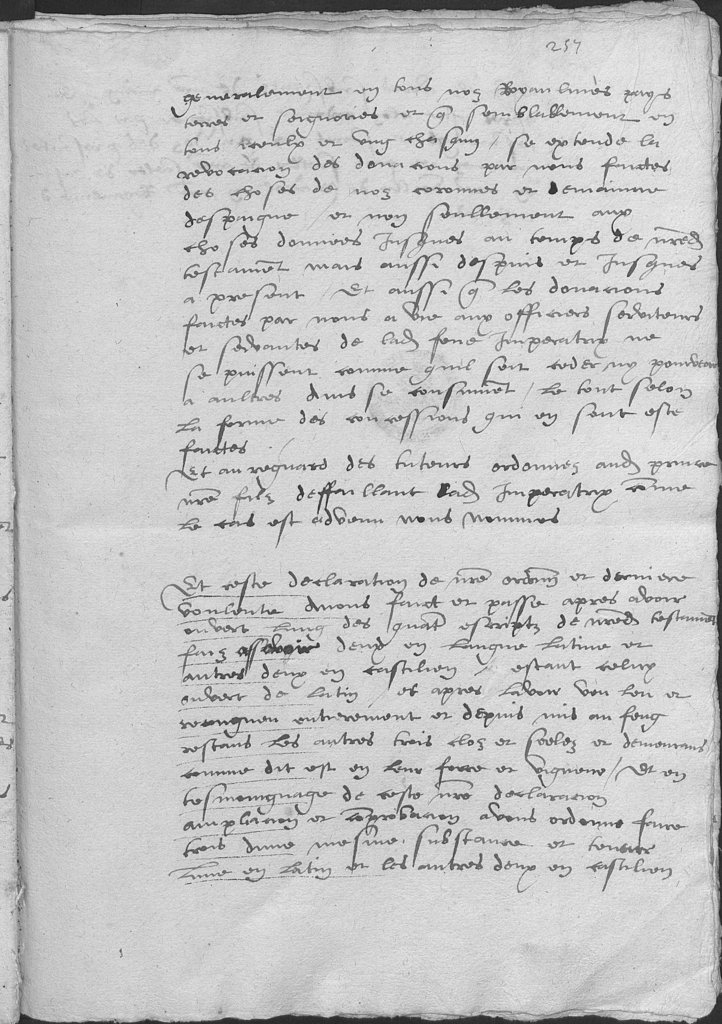 257
generalement en tous noz Royaulmes pays
terres et seignories et q semblablement en
tous iceulx et ung chascun / se extende la
revocacion des donacions par nous faictes
des choses de noz coronnes et demainne
despaigne et non seullement aux
choses donnees Jusques au temps de nred
testament mais aussi despuis et Jusques
a present / Et aussi q les donacions
faictes par nous a vie aux officiers serviteurs
et servantes de lad feue Imperatrix ne
se puissent comme quil soit ceder ny
a aultres ains se consument / le tout selon
la forme des concessions qui en sont este
faictes
Et au reguard des tuteurs ordonnez aud prince
nre filz deffaillant lad Imperatrix comme
le cas est advenu nous nommes
Et ceste declaration de nre ordonn et derniere
voulente avons faict et passe apres avoir
ouvert lung des quatre escriptz de nred testament
faiz assavoir deux en langue latine et
autres deux en castilien / estant celuy
ouvert de latin / et apres lavoir veu leu et
recongneu entierement et depuis mis au feug
restans les autres trois cloz et seelez et demeurans
comme dit est en leur force et vigueur / Et en
tesmoingnage de ceste nre declaracion
ampliacion et comprobacion avons ordonne faire
trois dune mesme substance et teneur
lune en latin et les autres deux en castilien